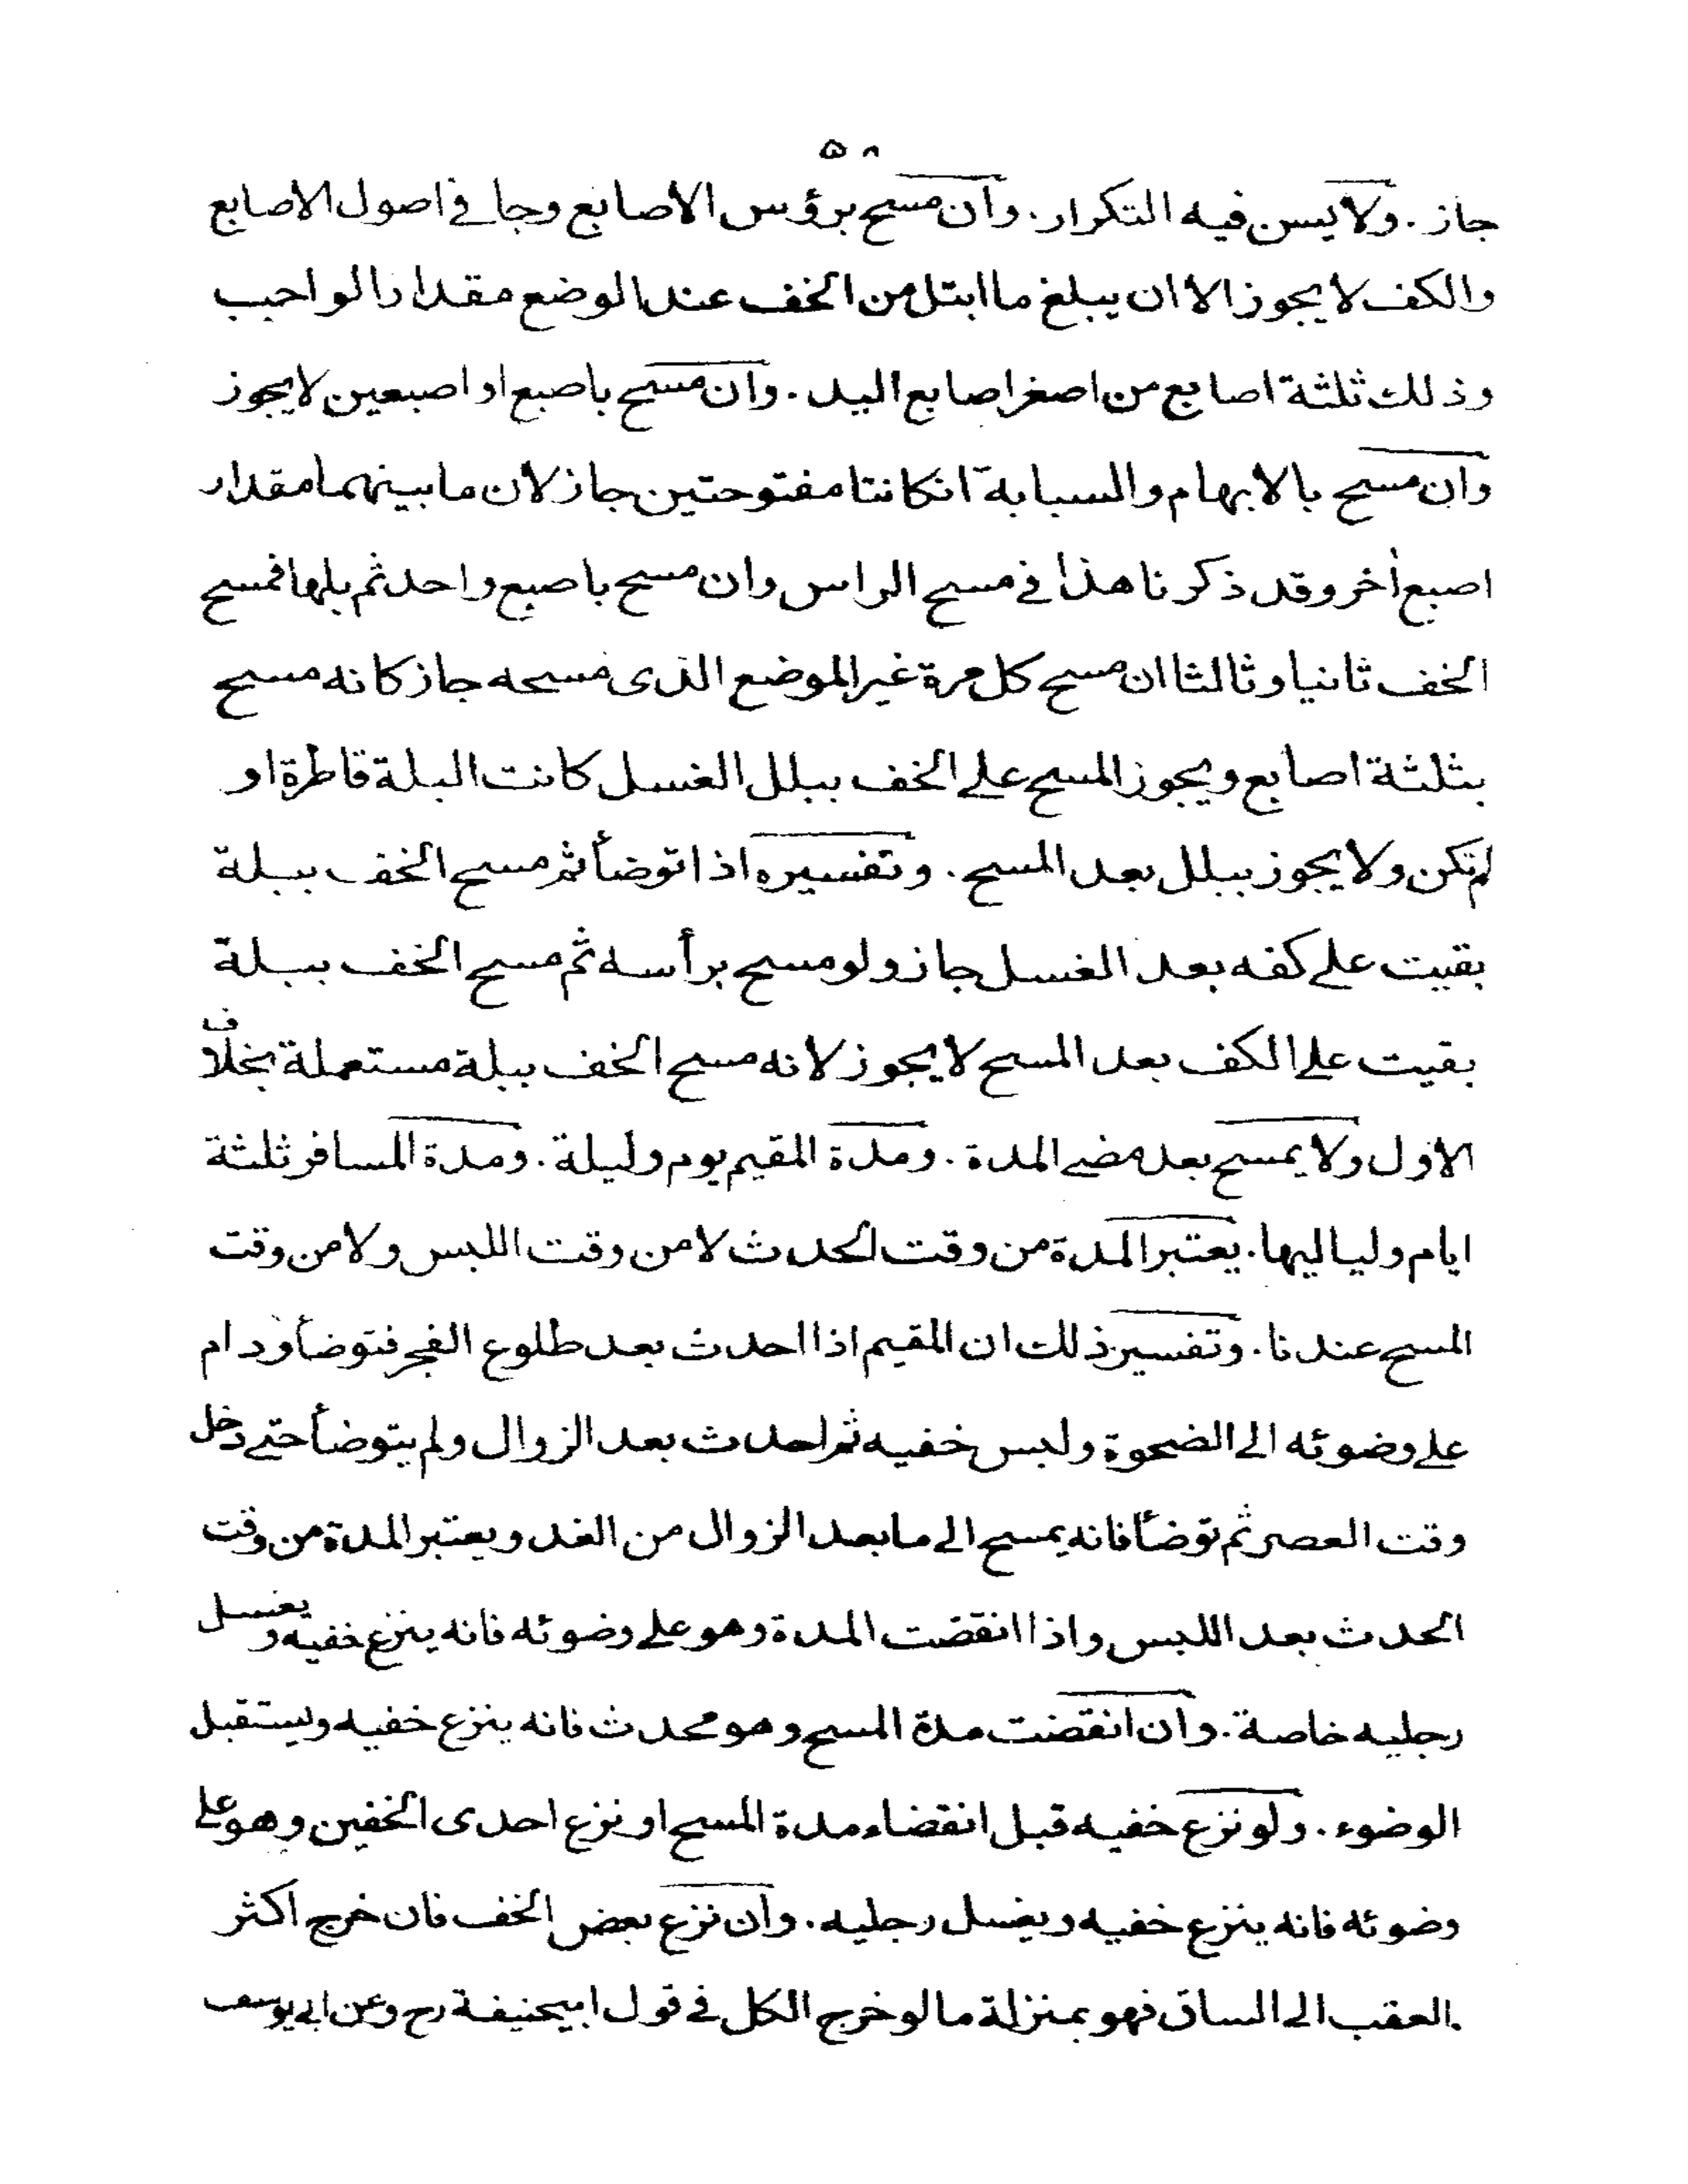 ٥٨
جاز. ولا يسن فيه التكرار. وان مسح برؤس الاصابع وجافى اصول الاصابع
والكف لا يجوز الا ان يبلغ ما ابتل من الخف عند الوضع مقدار الواجب
وذلك ثلثة اصابع من اصغر اصابع اليد. وان مسح باصبع او اصبعين لا يجوز
وان مسح بالابهام والسبابة انكانتا مفتوحتين جاز لان ما بينهما مقدار
اصبع اخر وقد ذكرنا هذا في مسح الراس وان مسح باصبع واحد ثم بلها فمسح
الخف ثانيا وثالثا ان مسح كل مرة غير الموضع الذى مسحه جاز كانه مسح
بثلثة اصابع ويجوز المسح على الخف ببلل الغسل كانت البلة قاطرة او
لم تكن ولا يجوز ببلل بعد المسح. وتفسيره اذا توضأ ثم مسح الخف ببلة
بقيت على كفه بعد الغسل جاز ولو مسح برأسه ثم مسح الخف ببلة
بقيت على الكف بعد المسح لا يجوز لانه مسح الخف ببلة مستعملة بخلاف
الاول ولا يمسح بعد مضي المدة. ومدة المقيم يوم وليلة. ومدة المسافر ثلثة
ايام ولياليها. يعتبر المدة من وقت الحدث لا من وقت اللبس ولا من وقت
المسح عندنا. وتفسير ذلك ان المقيم اذا احدث بعد طلوع الفجر فتوضأ ودام
على وضوئه الى الضحوة ولبس خفيه ثم احدث بعد الزوال ولم يتوضأ حتى دخل
وقت العصر ثم توضأ فانه يمسح الى ما بعد الزوال من الغد ويعتبر المدة من وقت
الحدث بعد اللبس واذا انقضت المدة وهو على وضوئه فانه ينزع خفيه ويغسل
رجليه خاصة. وان انقضت مدة المسح وهو محدث فانه ينزع خفيه ويستقبل
الوضوء. ولو نزع خفيه قبل انقضاء مدة المسح او نزع احدى الخفين وهو على
وضوئه فانه ينزع خفيه ويغسل رجليه. وان نزع بعض الخف فان خرج اكثر
العقب الى الساق فهو بمنزلة ما لو خرج الكل في قول ابيحنيفة رح وعن ابي يوسف